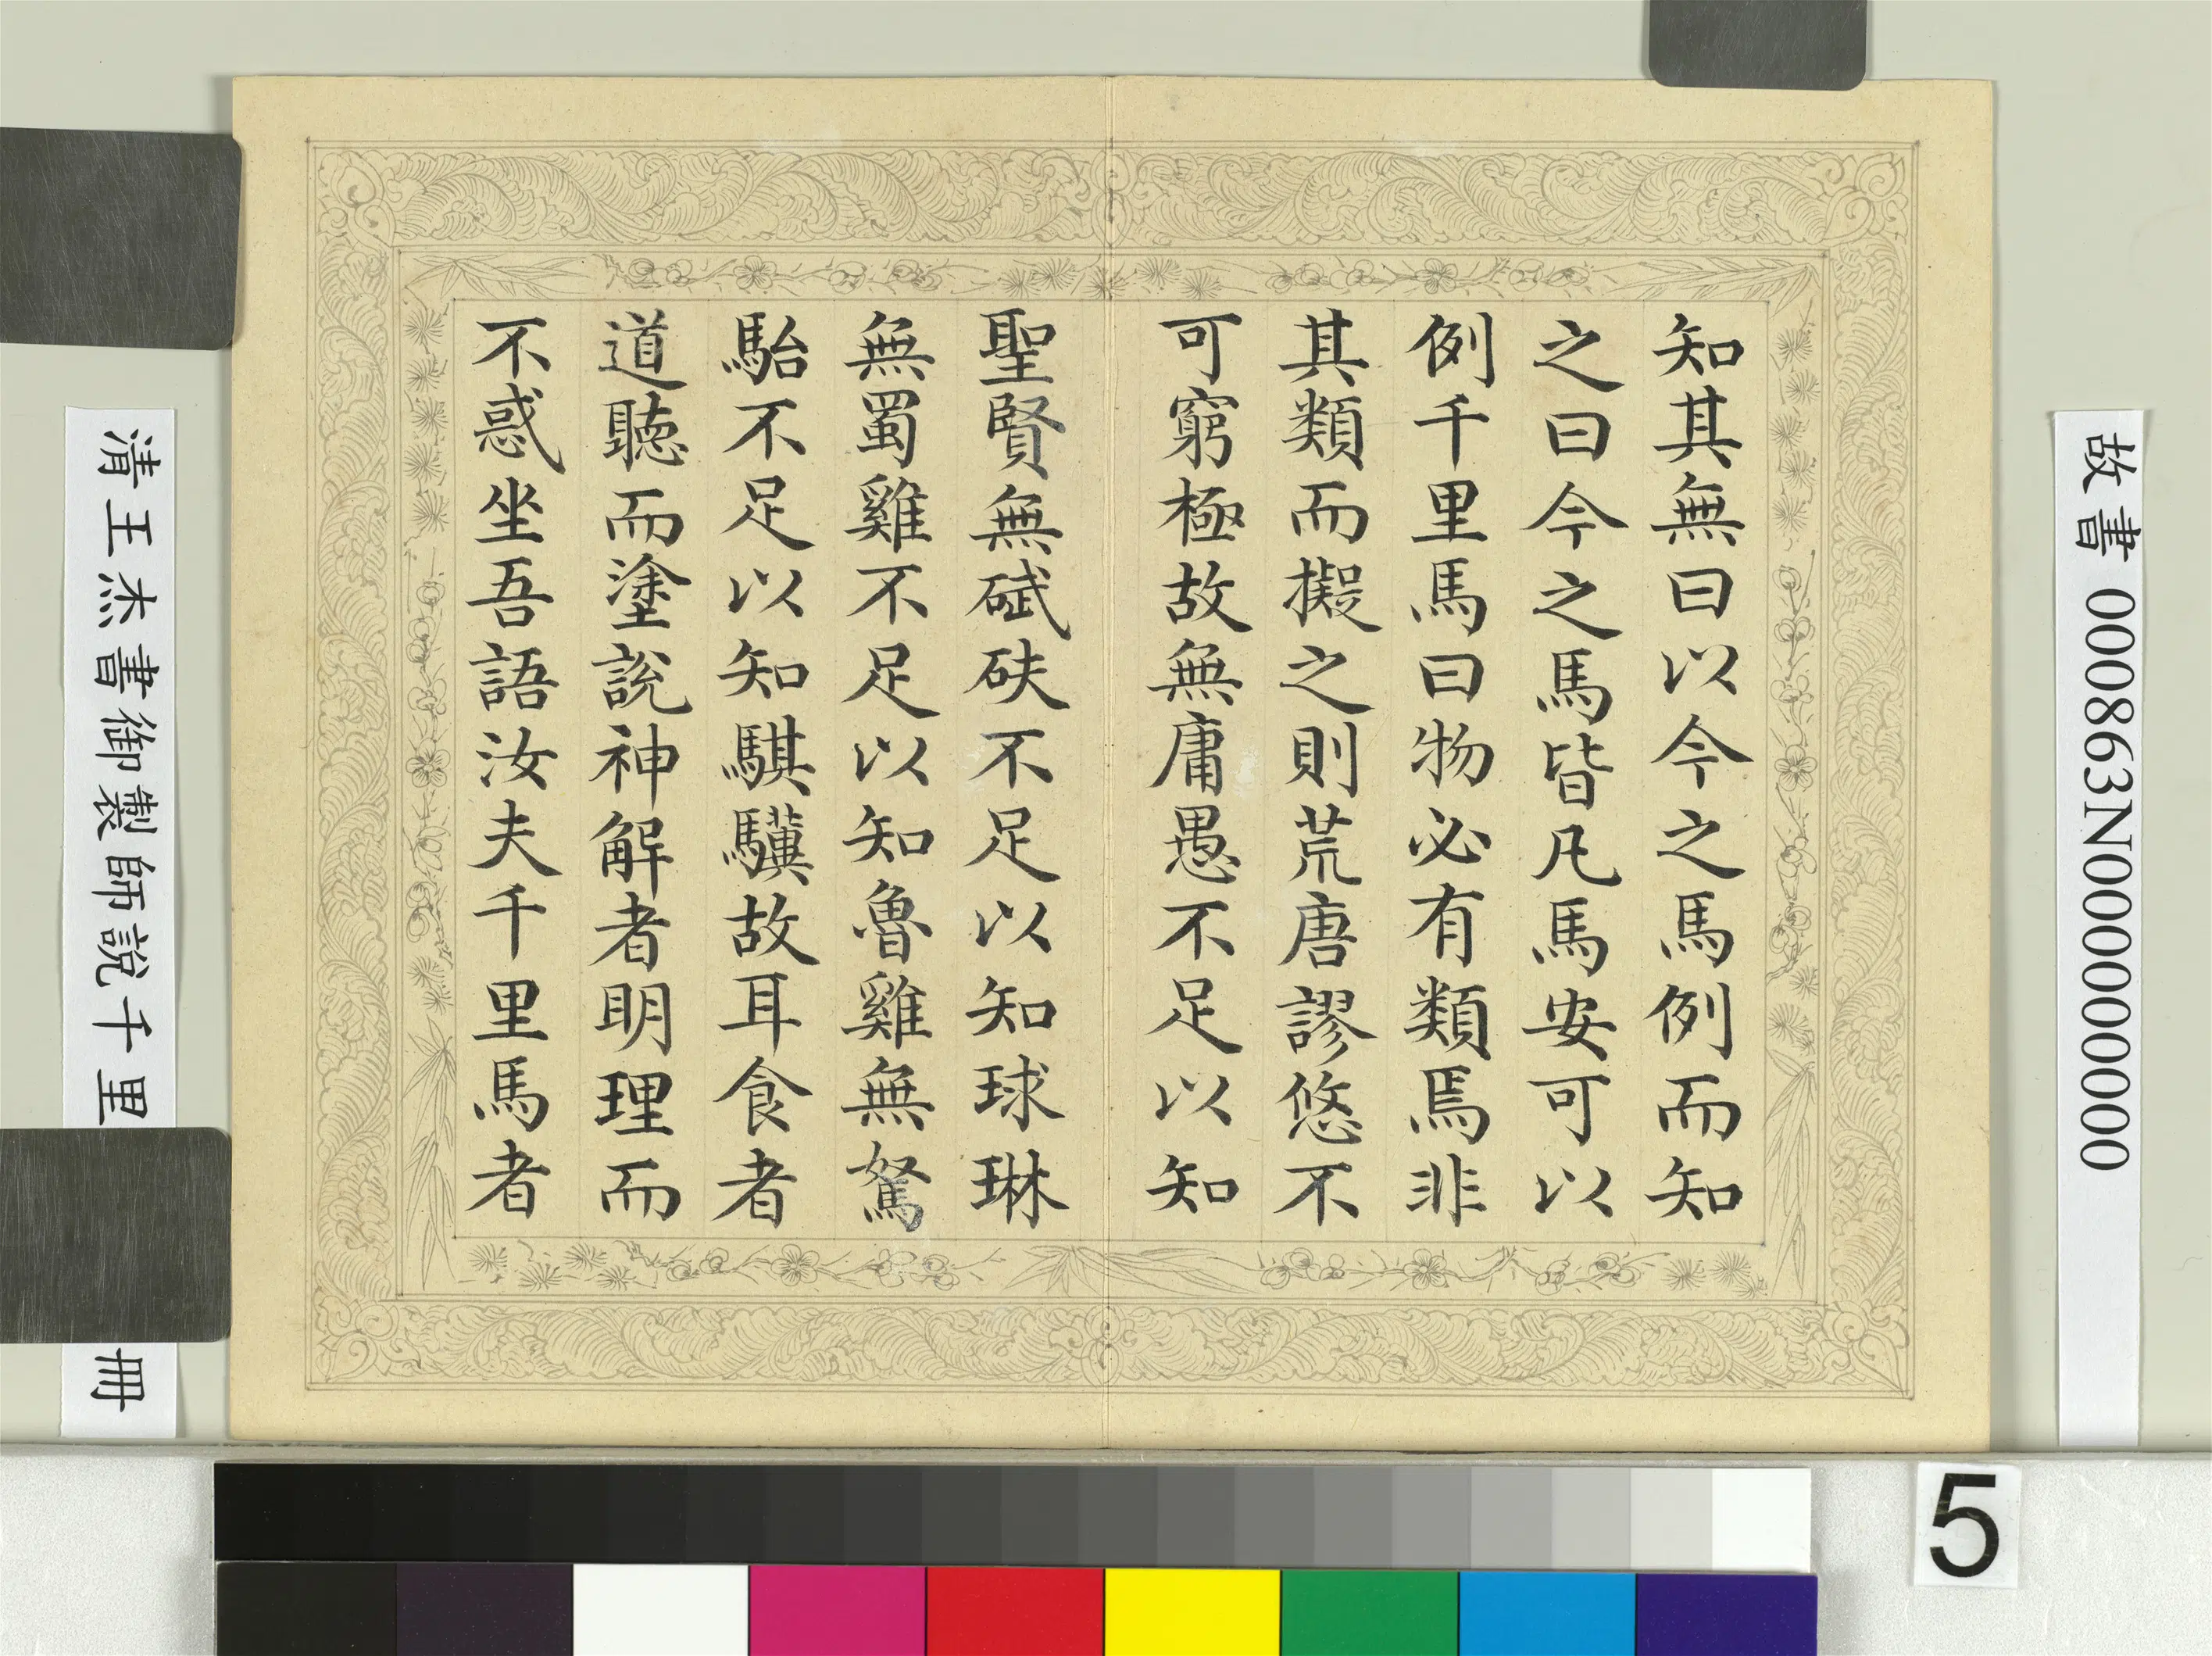 故書000863N000000000
知其無曰以今之馬例而知
之曰今之馬皆凡馬安可以
例千里馬曰物必有類焉非
其類而擬之則荒唐謬悠不
可窮極故無庸愚不足以知
聖賢無碔砆不足以知球琳
無蜀雞不足以知魯雞無駑
駘不足以知騏驥故耳食者
道聽而塗說神解者明理而
不惑坐吾語汝夫千里馬者
清王杰書御製師說千里
冊
5